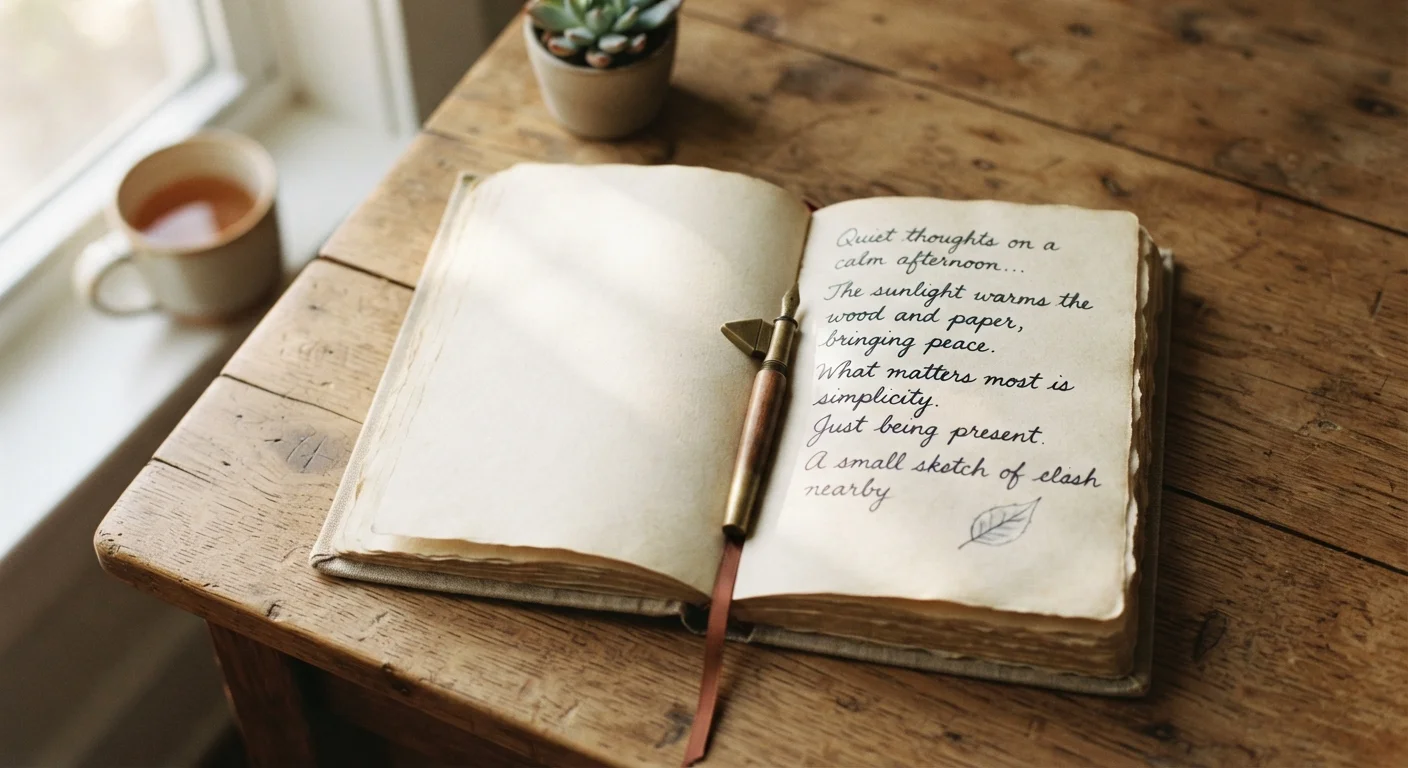 Quiet thoughts on a
calm afternoon...
The sunlight warms the
wood and paper,
bringing peace.
What matters most is
simplicity.
Just being present.
A small sketch of elash
nearby